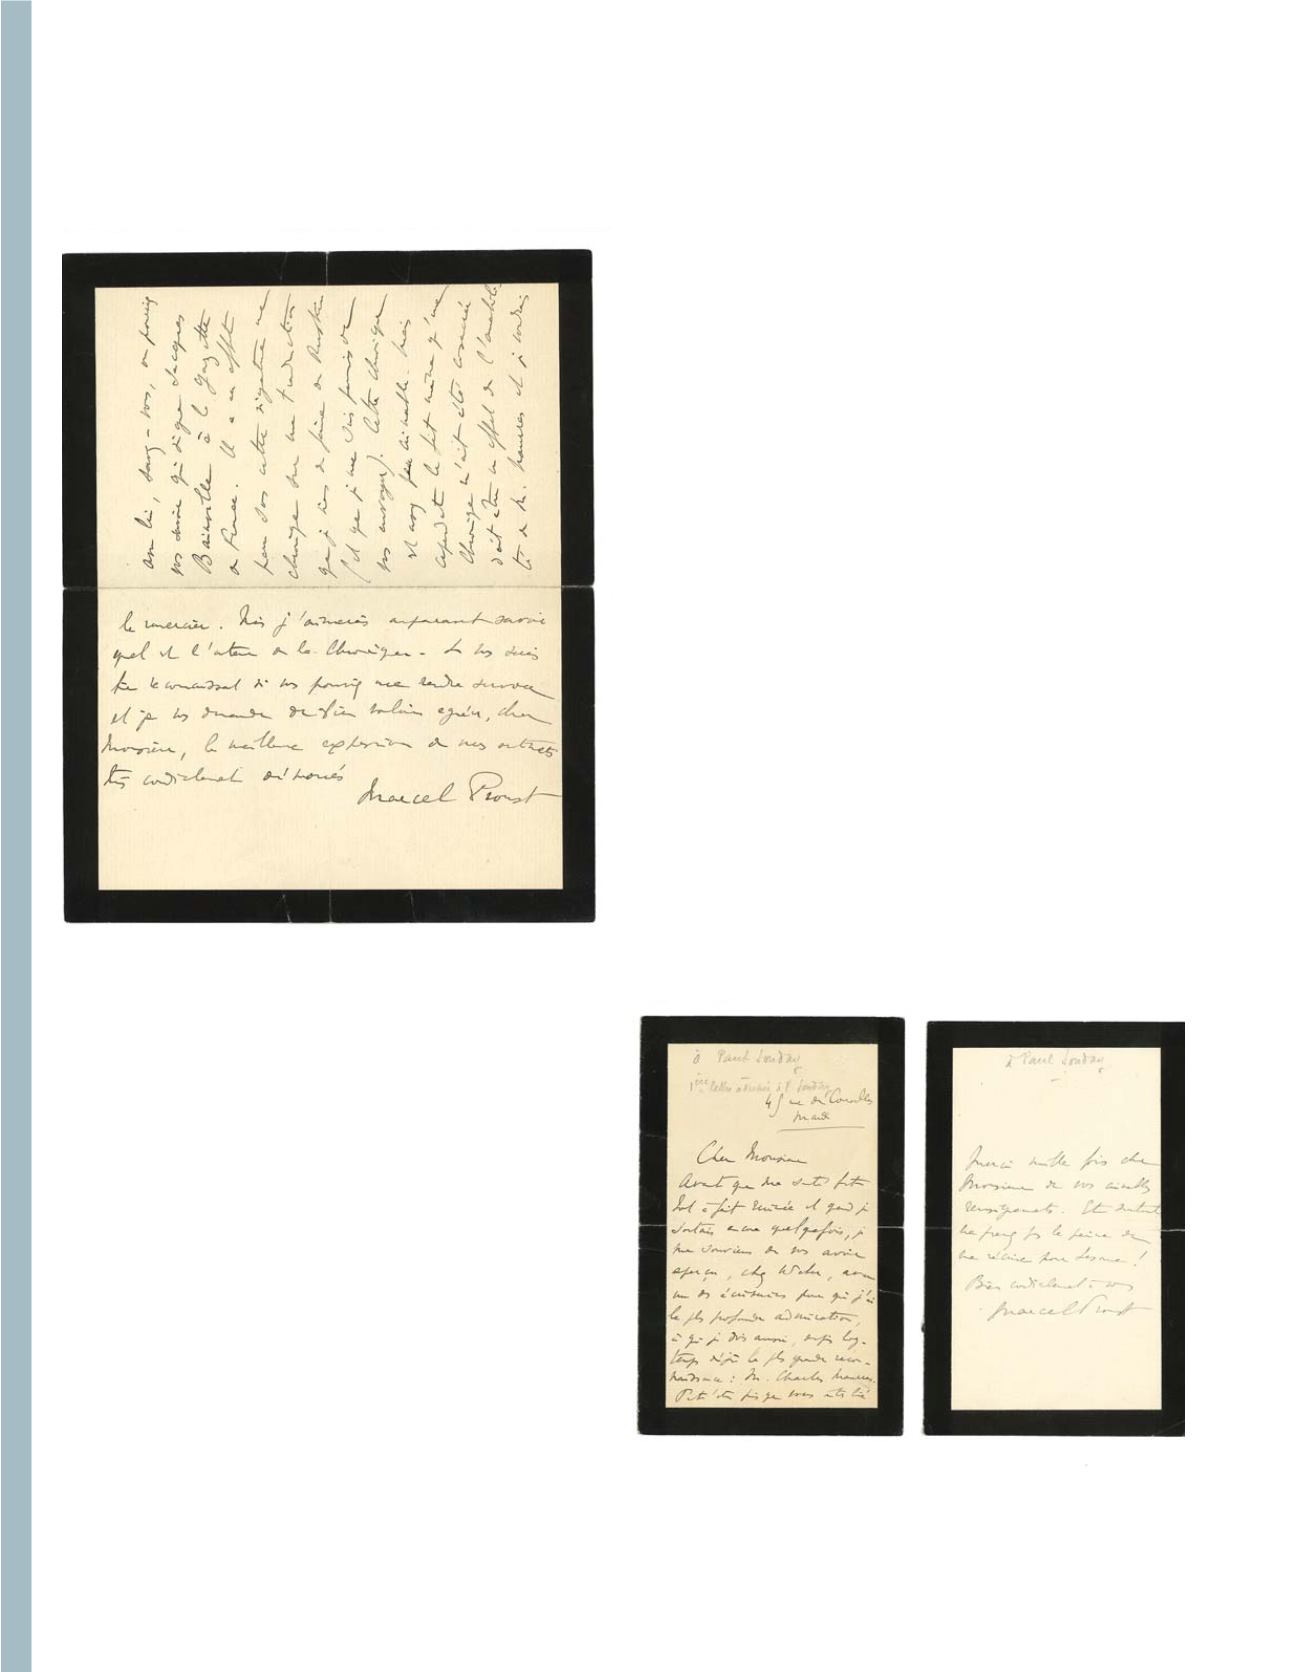 avec lui, saurez-vous, ou pouvez
vous savoir qui signe Jacques
Bainville à la Gazette
de France. Il a en effet
paru sous cette signature une
chronique sur une traduction
que je viens de faire de Ruskin
(et que je me suis permis de
vous envoyer). Cette chronique
est assez peu aimable. Mais
cependant le fait même qu'une
chronique m'ait été consacrée
doit être un effet de l'amabili
té de M. Maurras et je voudrais
le remercier. Mais j'aimerais auparavant savoir
quel est l'auteur de la Chronique. Je vous serais
très reconnaissant si vous pouviez me rendre service
et je vous demande de bien vouloir agréer, cher
Monsieur, la meilleure expression de mes sentiments
très cordialement dévoués
Marcel Proust
à Paul Souday
1ère lettre adressée à P. Souday
45 rue de Courcelles
Mardi
Cher Monsieur
Avant que ma santé fût
tout à fait ruinée et quand je
sortais encore quelquefois, je
me souviens de vous avoir
aperçu, chez Weber, avec
un des écrivains pour qui j'ai
la plus profonde admiration,
à qui je dois aussi, depuis long-
temps déjà la plus grande recon-
naissance : M. Charles Maurras.
Peut'être puisque vous êtes lié
à Paul Souday
Merci mille fois cher
Monsieur de vos aimables
renseignements. Et surtout
ne prenez pas la peine de
me récrire pour Sésame !
Bien cordialement à vous
Marcel Proust